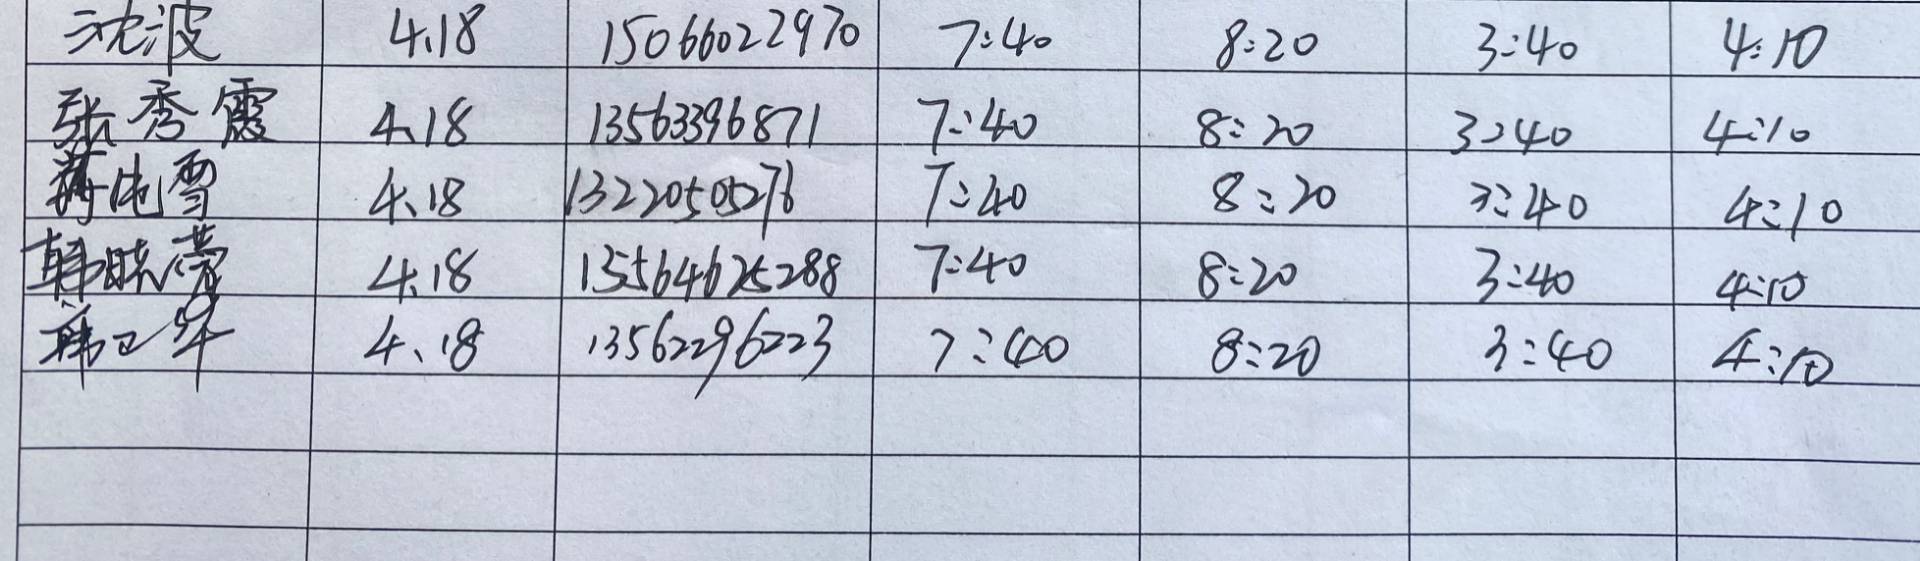 沈波 4.18 15066022970 7:40 8:20 3:40 4:10
张秀霞 4.18 13563396871 7:40 8:20 3:40 4:10
雪 4.18 13220505276 7:40 8:20 3:40 4:10
韩晓莹 4.18 13564625288 7:40 8:20 3:40 4:10
韩卫军 4.18 13562296223 7:40 8:20 3:40 4:10